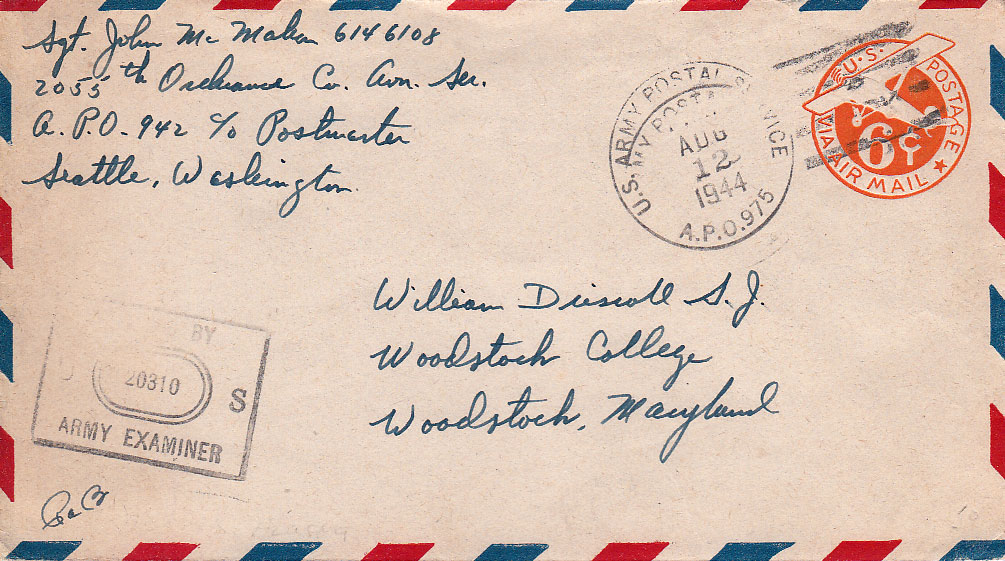 Sgt. John McMahon 6146108
2055th Ordnance Co. Avn. Ser.
A.P.O. 942 c/o Postmaster
Seattle, Washington
U.S. ARMY POSTAL SERVICE
AUG
12
1944
A.P.O. 975
U.S. POSTAGE
6¢
VIA AIR MAIL
William Driscoll S.J.
Woodstock College
Woodstock, Maryland
BY
20310
U.S
ARMY EXAMINER